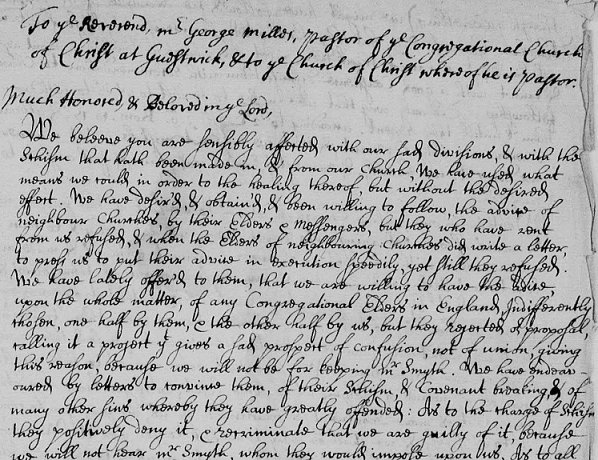 To ye Reverend, mr George Miller, pastor of ye Congregational Church
of Christ at Guestwick, & to ye Church of Christ whereof he is pastor.
Much Honored & Beloved in ye Lord,
We beleeve you are sensibly affected with our sad divisions & with the
Schism that hath been made in & from our Church. We have used what
means we could in order to the healing thereof, but without the desired
effect. We have desir'd, & obtain'd, & been willing to follow, the advise of
neighbour Churches, by their Elders & Messengers, but they who have rent
from us refused, & when the Elders of neighbouring Churches did write a letter,
to press us to put their advise in execution speedily, yet still they refused.
We have lately offer'd to them, that we are willing to have the advise
upon the whole matter, of any Congregational Elders in England, Indifferently
chosen, one half by them, & the other half by us, but they rejected yt proposal,
calling it a project yt gives a sad prospect of confusion, not of union, giving
this reason, because we will not be for keeping mr Smyth. We have endeav-
oured by letters to convince them, of their Schism, & Covenant breaking, & of
many other sins whereby they have greatly offended: As to the charge of Schism
they positively deny it, & recriminate that we are guilty of it, because
we will not hear mr Smyth, whom they would impose upon us. As to all